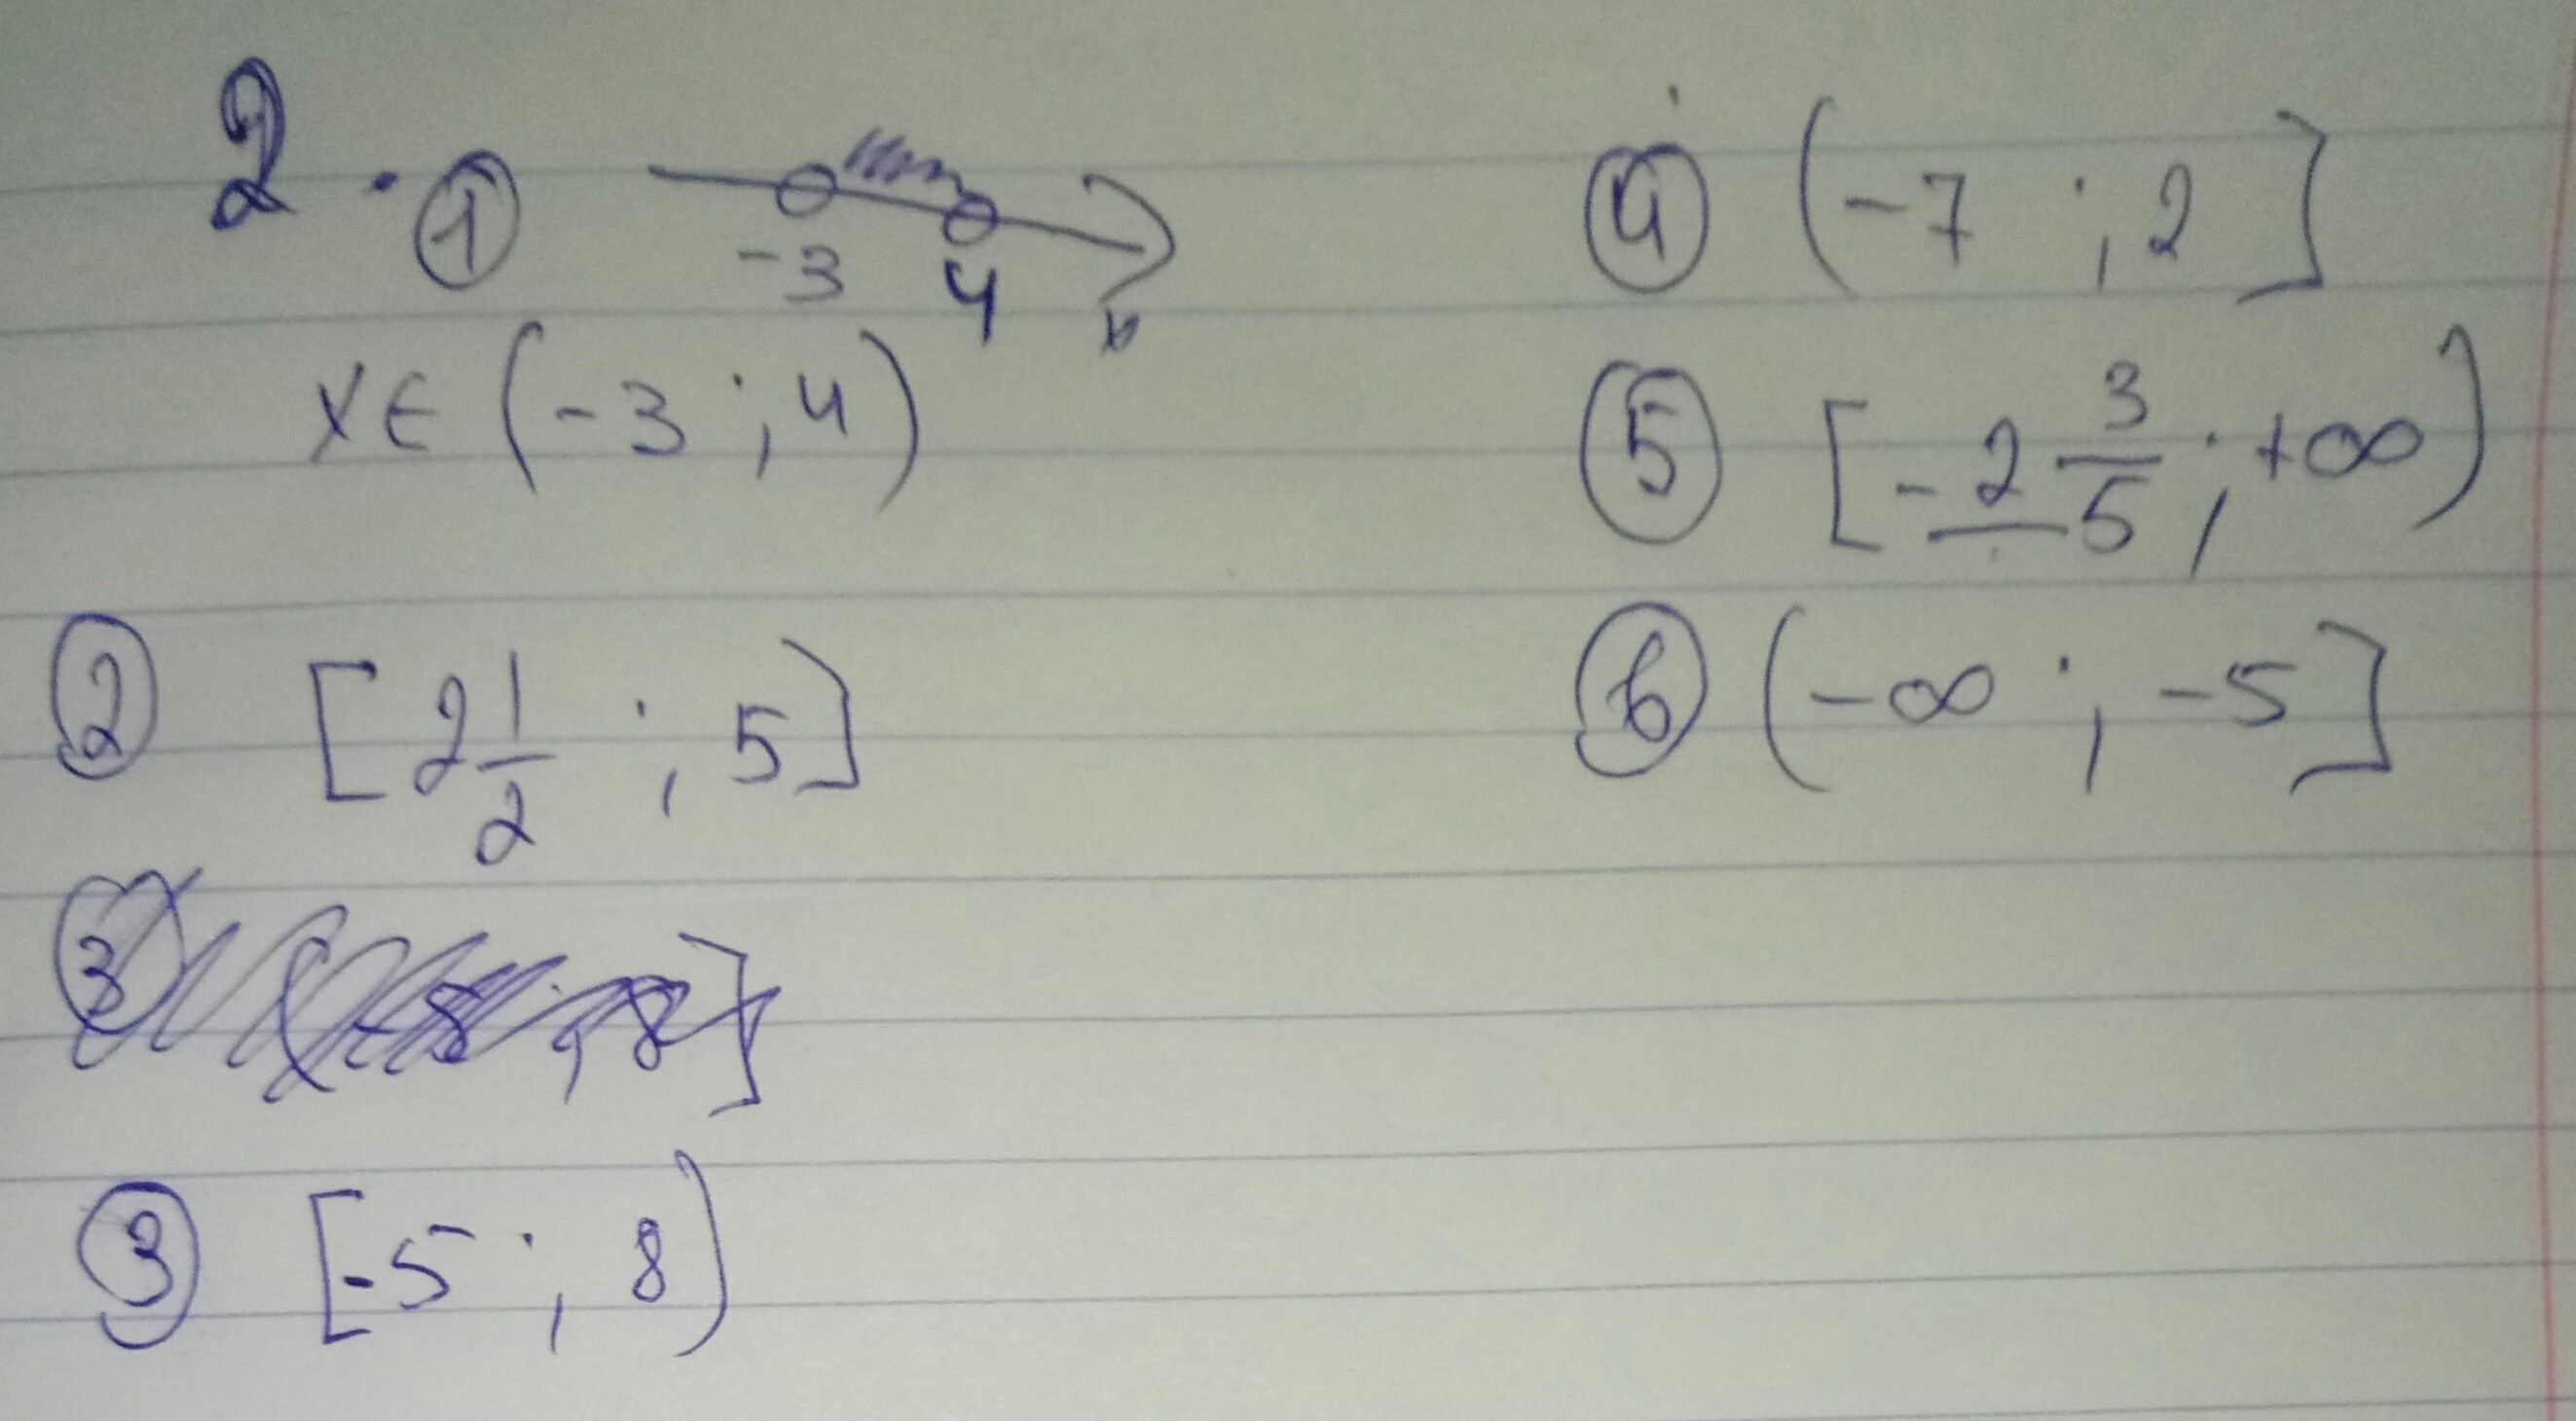 2. ①
-3 4 x
x∈(-3;4)
② [2 1/2 ; 5]
③ [-5 ; 8)
④ (-7 ; 2]
⑤ [-2 3/5 ; +∞)
⑥ (-∞ ; -5]